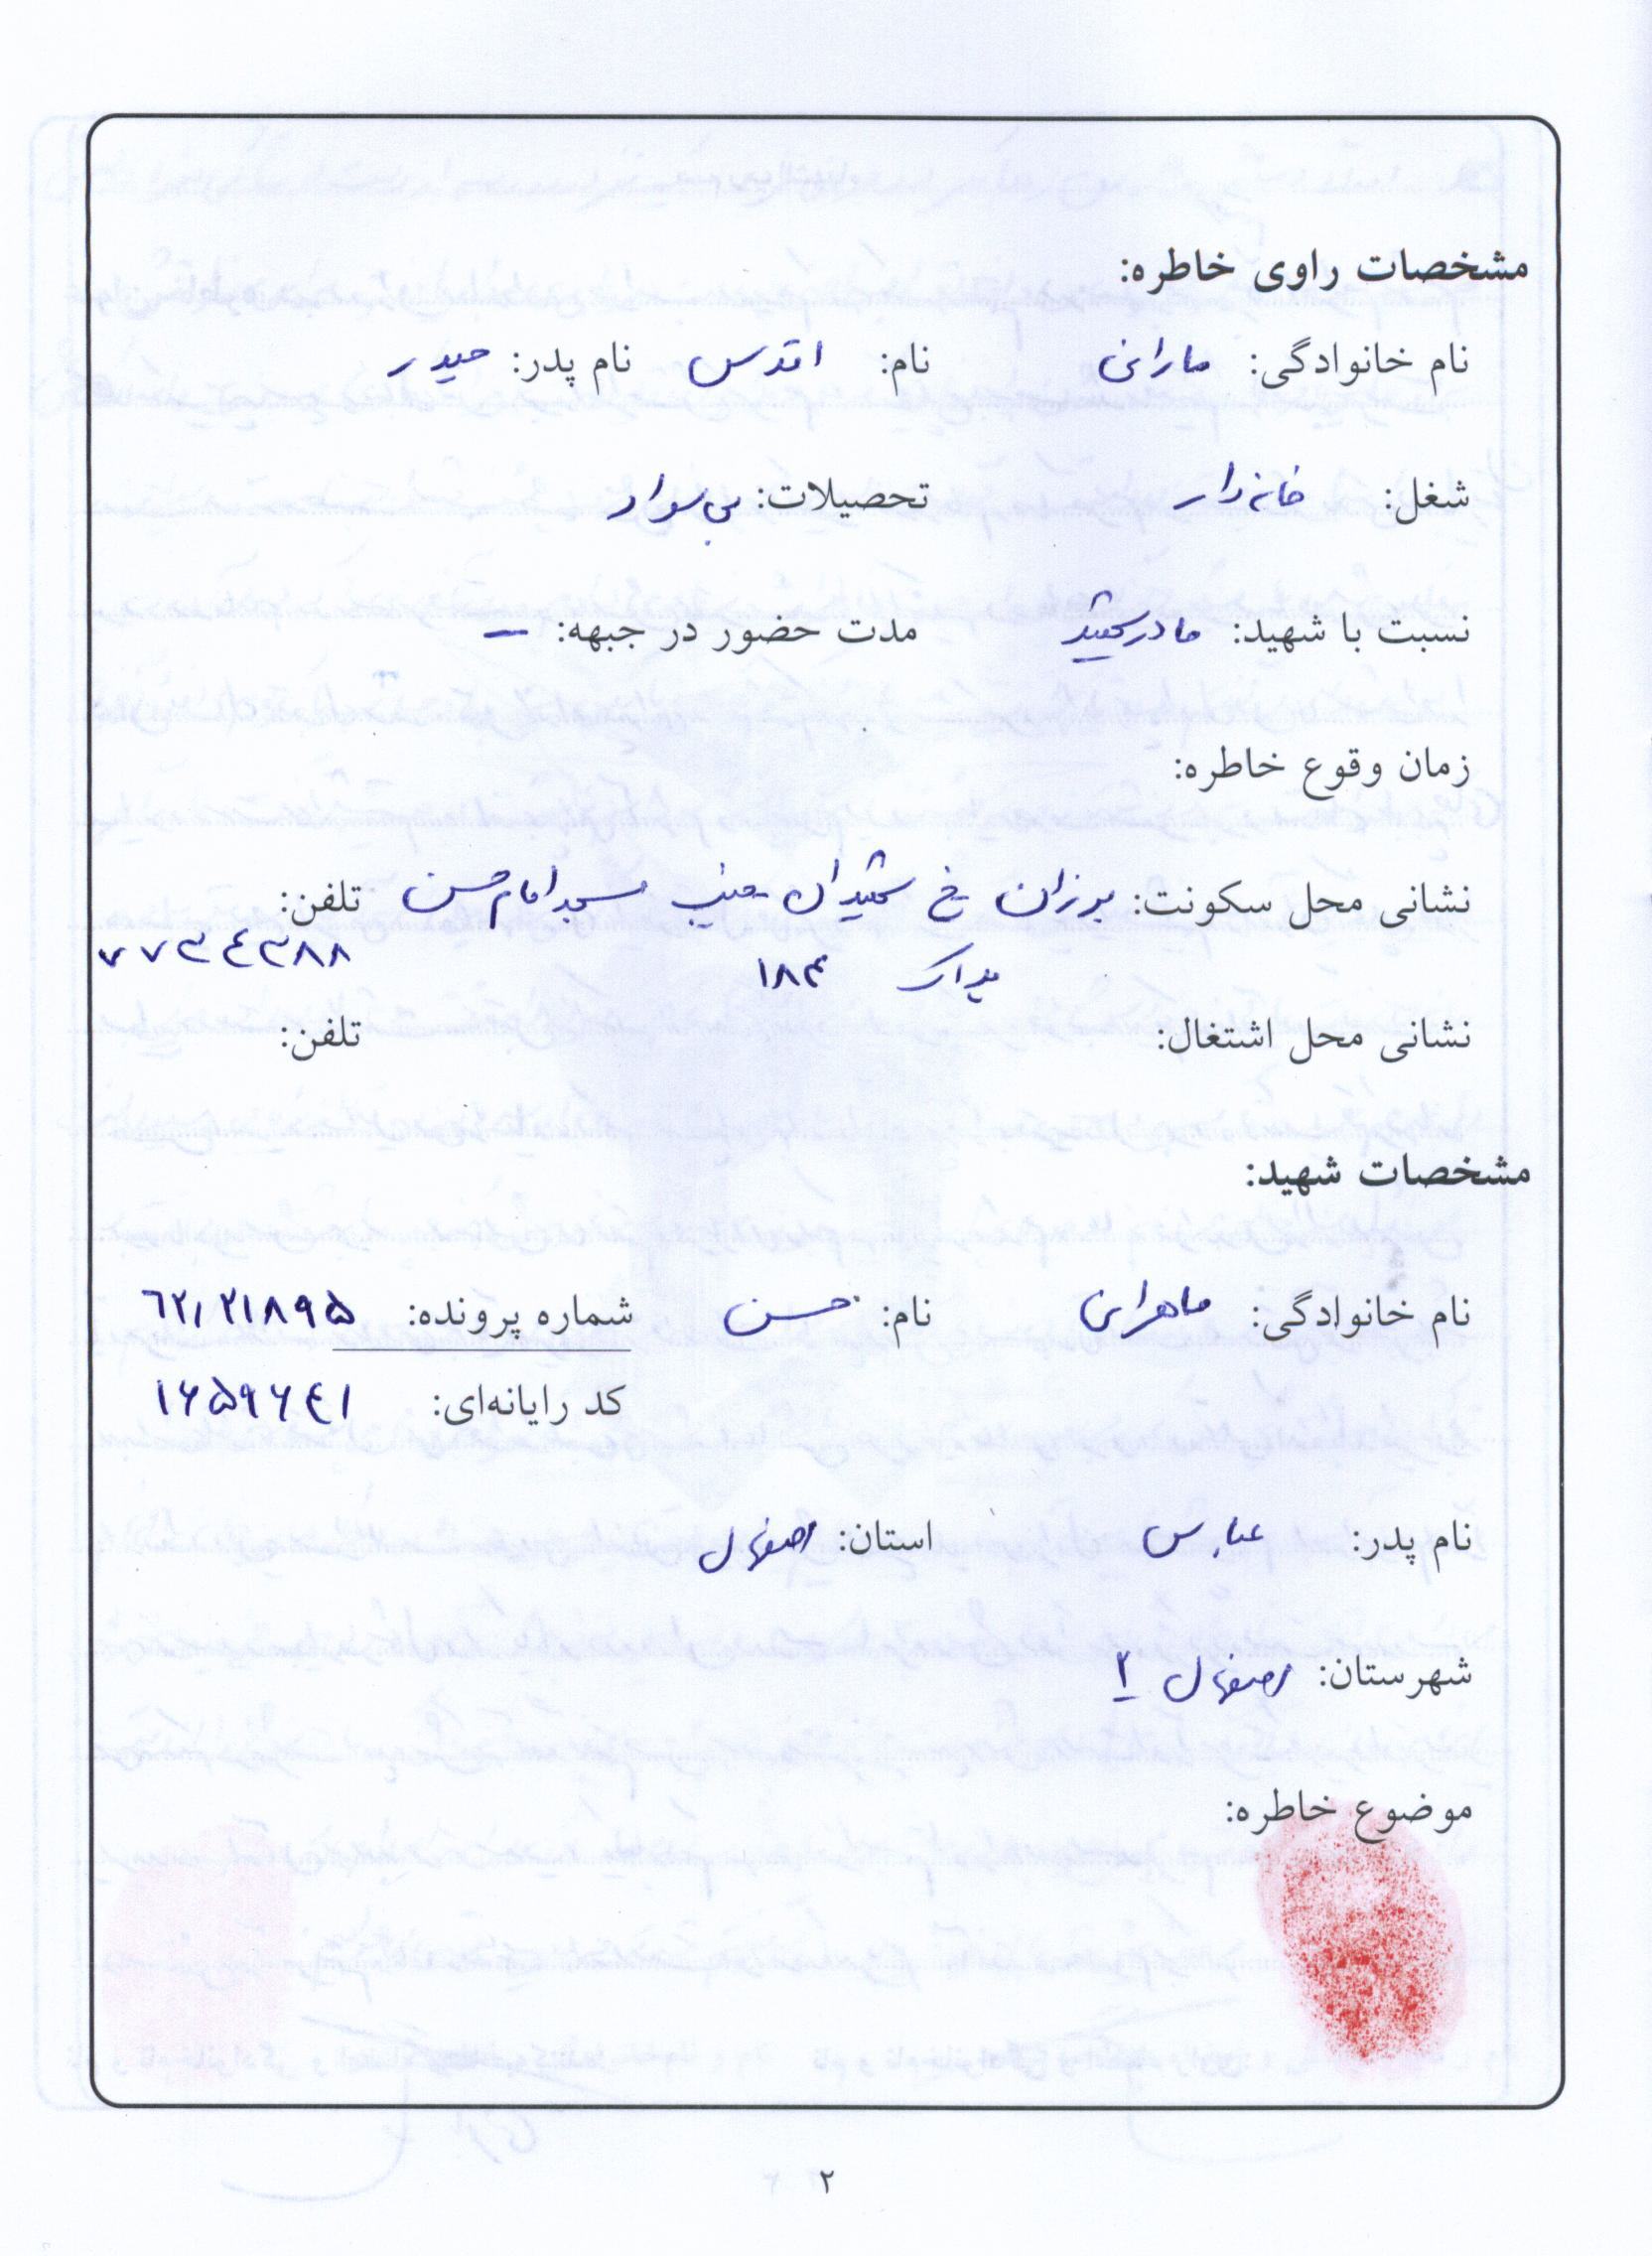 مشخصات راوی خاطره:
نام خانوادگی: مارانی نام: اقدس نام پدر: حیدر
شغل: خانه دار تحصیلات: بی سواد
نسبت با شهید: مادر شهید مدت حضور در جبهه: —
زمان وقوع خاطره:
نشانی محل سکونت: برزان خ شهیدان جنب مسجد امام حسن تلفن:
پلاک ۱۸۴ ۷۷۳۴۳۸۸
نشانی محل اشتغال: تلفن:
مشخصات شهید:
نام خانوادگی: ماهرانی نام: حسن شماره پرونده: ۶۲۱۲۱۸۹۵
کد رایانه‌ای: ۱۶۵۹۶۴۱
نام پدر: عباس استان: اصفهان
شهرستان: اصفهان ۲
موضوع خاطره:
۲